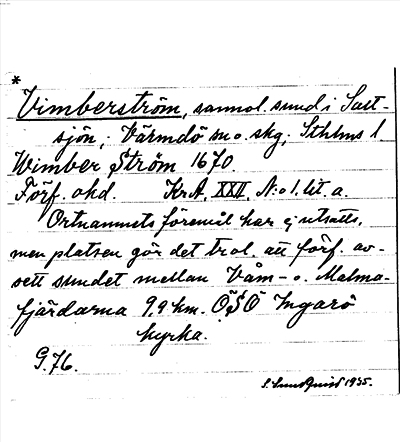 *
Vimberström, sannol. sund i Salt-
sjön; Värmdö m.o. skg; Sthlms l
Wimber Ström 1670.
Förf. okd. KrA. XXII. N:o 1. lit a.
Ortnamnets föremål har ej utsatts,
men platsen gör det trol. att förf. av-
sett sundet mellan Våm- o. Malma-
fjärdarna 9,9 km. OSO Ingarö
kyrka.
G. 76.
S. Lundquist 1935.